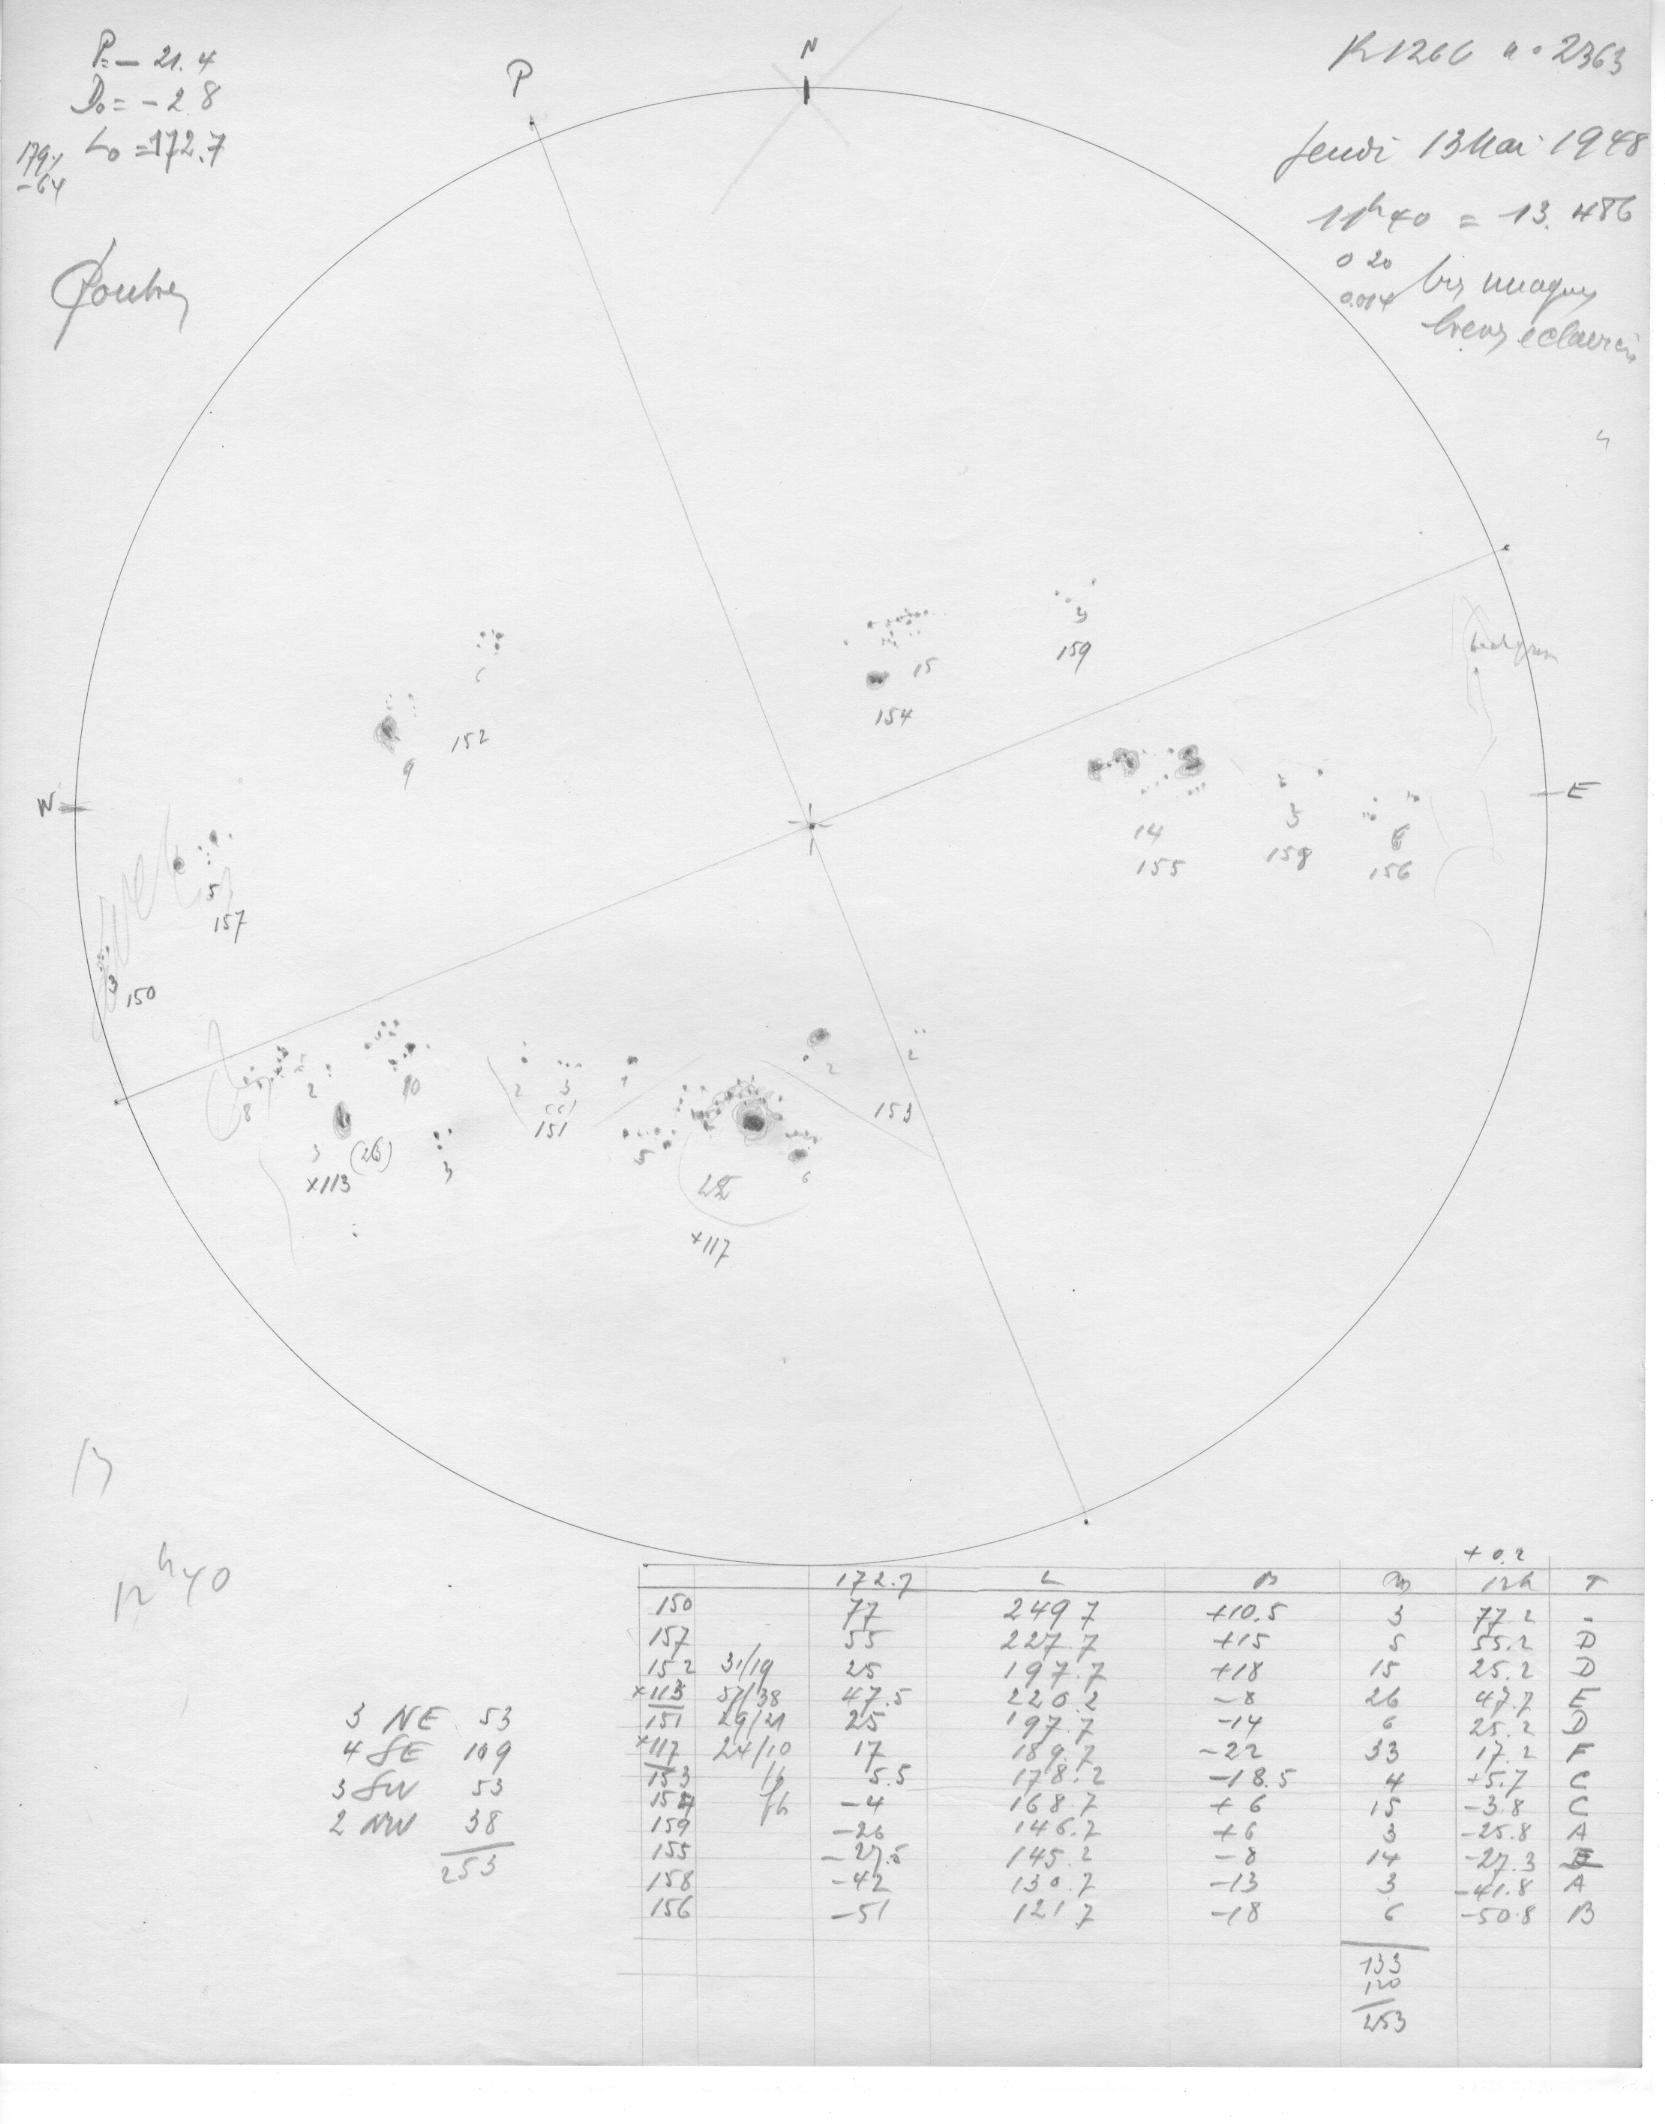 P = - 21.4
Do = - 2.8
Lo = 172.7
179.1
- 64
P
N
R1266 no 2363
Jeudi 13 Mai 1948
11h40 = 13.486
0 20
0.014
W
E
6
9
152
15
154
3
159
14
155
3
158
6
156
5
157
3
150
8
2
10
3
(26)
x113
3
2
3
(6)
151
1
5
22
6
x117
2
2
153
13
12h40
3 NE 53
4 SE 109
3 SW 53
2 NW 38
253
+0.2
172.7 L B 12h T
150 77 249.7 +10.5 3 77.2 -
157 55 227.7 +15 5 55.2 D
152 31/19 25 197.7 +18 15 25.2 D
x113 57/38 47.5 220.2 -8 26 47.7 E
151 29/21 25 197.7 -14 6 25.2 D
x117 24/10 17 189.7 -22 33 17.2 F
153 16 5.5 178.2 -18.5 4 +5.7 C
154 -4 168.7 +6 15 -3.8 C
159 -26 146.7 +6 3 -25.8 A
155 -27.5 145.2 -8 14 -27.3 E
158 -42 130.7 -13 3 -41.8 A
156 -51 121.7 -18 6 -50.8 B
133
120
253